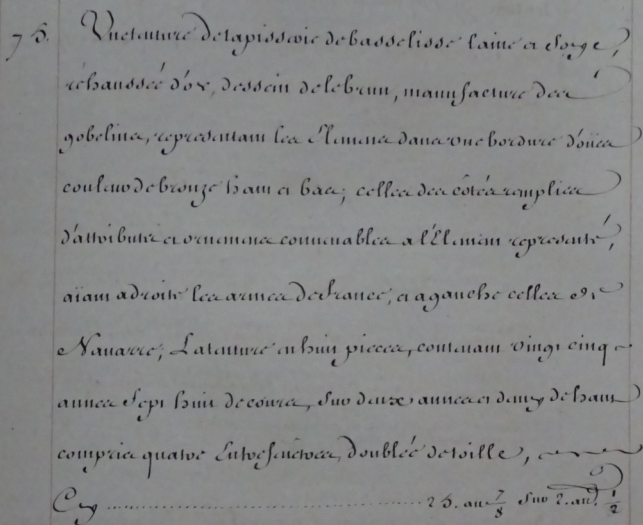 75. Une tenture de tapisserie de basse lisse laine et soye,
réhaussée d'or, dessein de le brun, manufacture des
gobelins, representant les Elemens dans une bordure d'oües
couleur de bronze haut et bas; celles des côtés remplies
d'attributs et ornemens convenables a l'Element representé,
aïant a droite les armes de france, et a gauche celles de
Navarre; La tenture en huit pieces, contenant vingt cinq
aunes sept huit de cours, sur deux aunes et demy de haut
compris quatre Entrefenêtres, doublée de toille,
Cy .......... 25. au 7/8 sur 2. au. 1/2